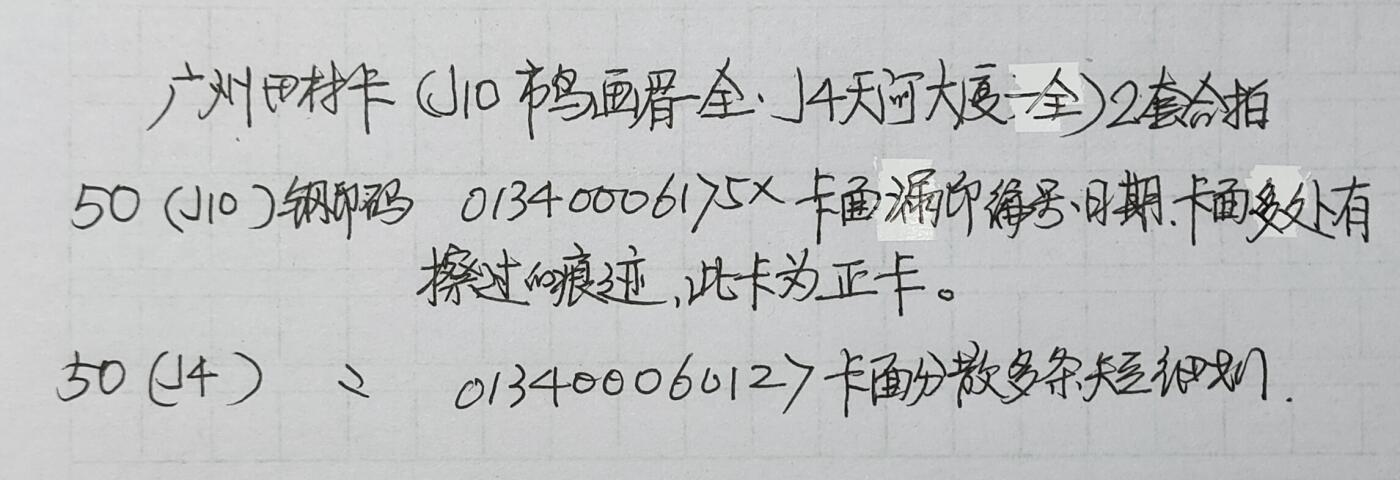 广州田村卡(J10市鸟画眉一全.J4天河大厦一全)2套合拍
50(J10)钢印码 01340006175X卡面漏印编号、日期.卡面多处有
擦过的痕迹,此卡为正卡。
50(J4) 〻 013400060127卡面分散多条短细划.